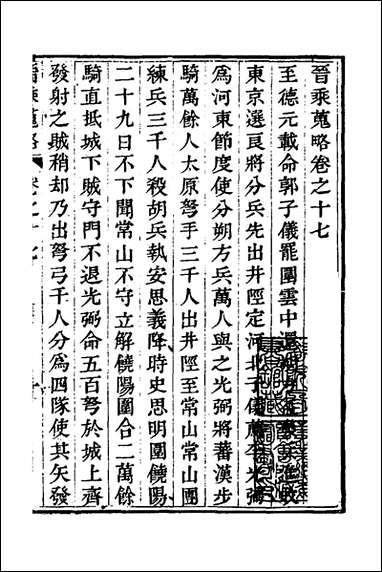 晉乘蒐略卷之十七
至德元載命郭子儀罷圍雲中還朔方益發兵進取
東京選良將分兵先出井陘定河北子儀薦李光弼
爲河東節度使分朔方兵萬人與之光弼將蕃漢步
騎萬餘人太原弩手三千人出井陘至常山常山團
練兵三千人殺胡兵執安思義降時史思明圍饒陽
二十九日不下聞常山不守立解饒陽圍合二萬餘
騎直抵城下賊守門不退光弼命五百弩於城上齊
發射之賊稍却乃出弩弓千人分爲四隊使其矢發
晉乘蒐略
卷之十七